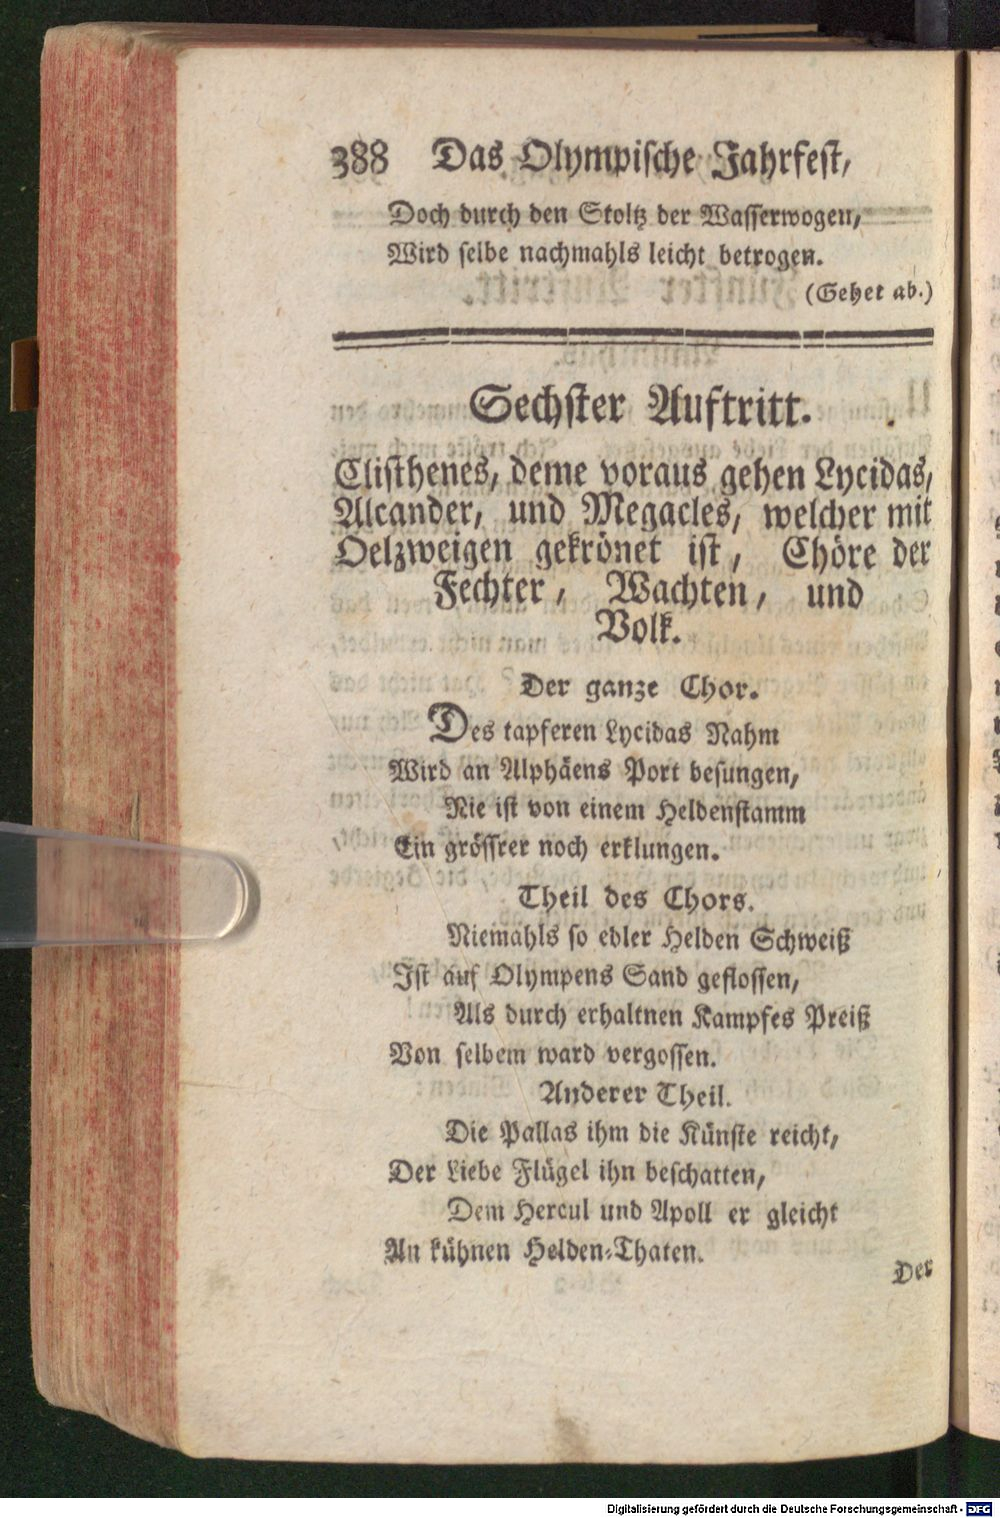 388 Das Olympische Jahrfest,
Doch durch den Stoltz der Wasserwogen,
Wird selbe nachmahls leicht betrogen.
(Gehet ab.)
Sechster Auftritt.
Clisthenes, deme voraus gehen Lycidas,
Alcander, und Megacles, welcher mit
Oelzweigen gekrönet ist, Chöre der
Fechter, Wachten, und
Volk.
Der ganze Chor.
Des tapferen Lycidas Nahm
Wird an Alphäens Port besungen,
Nie ist von einem Heldenstamm
Ein grössrer noch erklungen.
Theil des Chors.
Niemahls so edler Helden Schweiß
Ist auf Olympens Sand geflossen,
Als durch erhaltnen Kampfes Preiß
Von selbem ward vergossen.
Anderer Theil.
Die Pallas ihm die Künste reicht,
Der Liebe Flügel ihn beschatten,
Dem Hercul und Apoll er gleicht
An kühnen Helden-Thaten.
Der
Digitalisierung gefördert durch die Deutsche Forschungsgemeinschaft - DFG